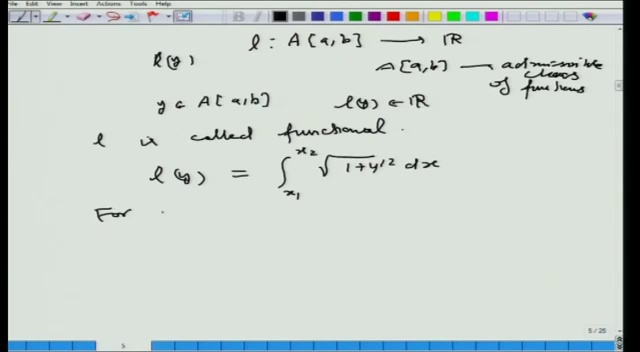 Edit View Insert Actions Tools Help
l : A[a,b] → IR
l(y)
A[a,b] — admissible class of functions
y ∈ A[a,b] l(y) ∈ IR
l is called functional.
l(y) = ∫_{x₁}^{x₂} √(1+y'²) dx
For
5 / 25
5